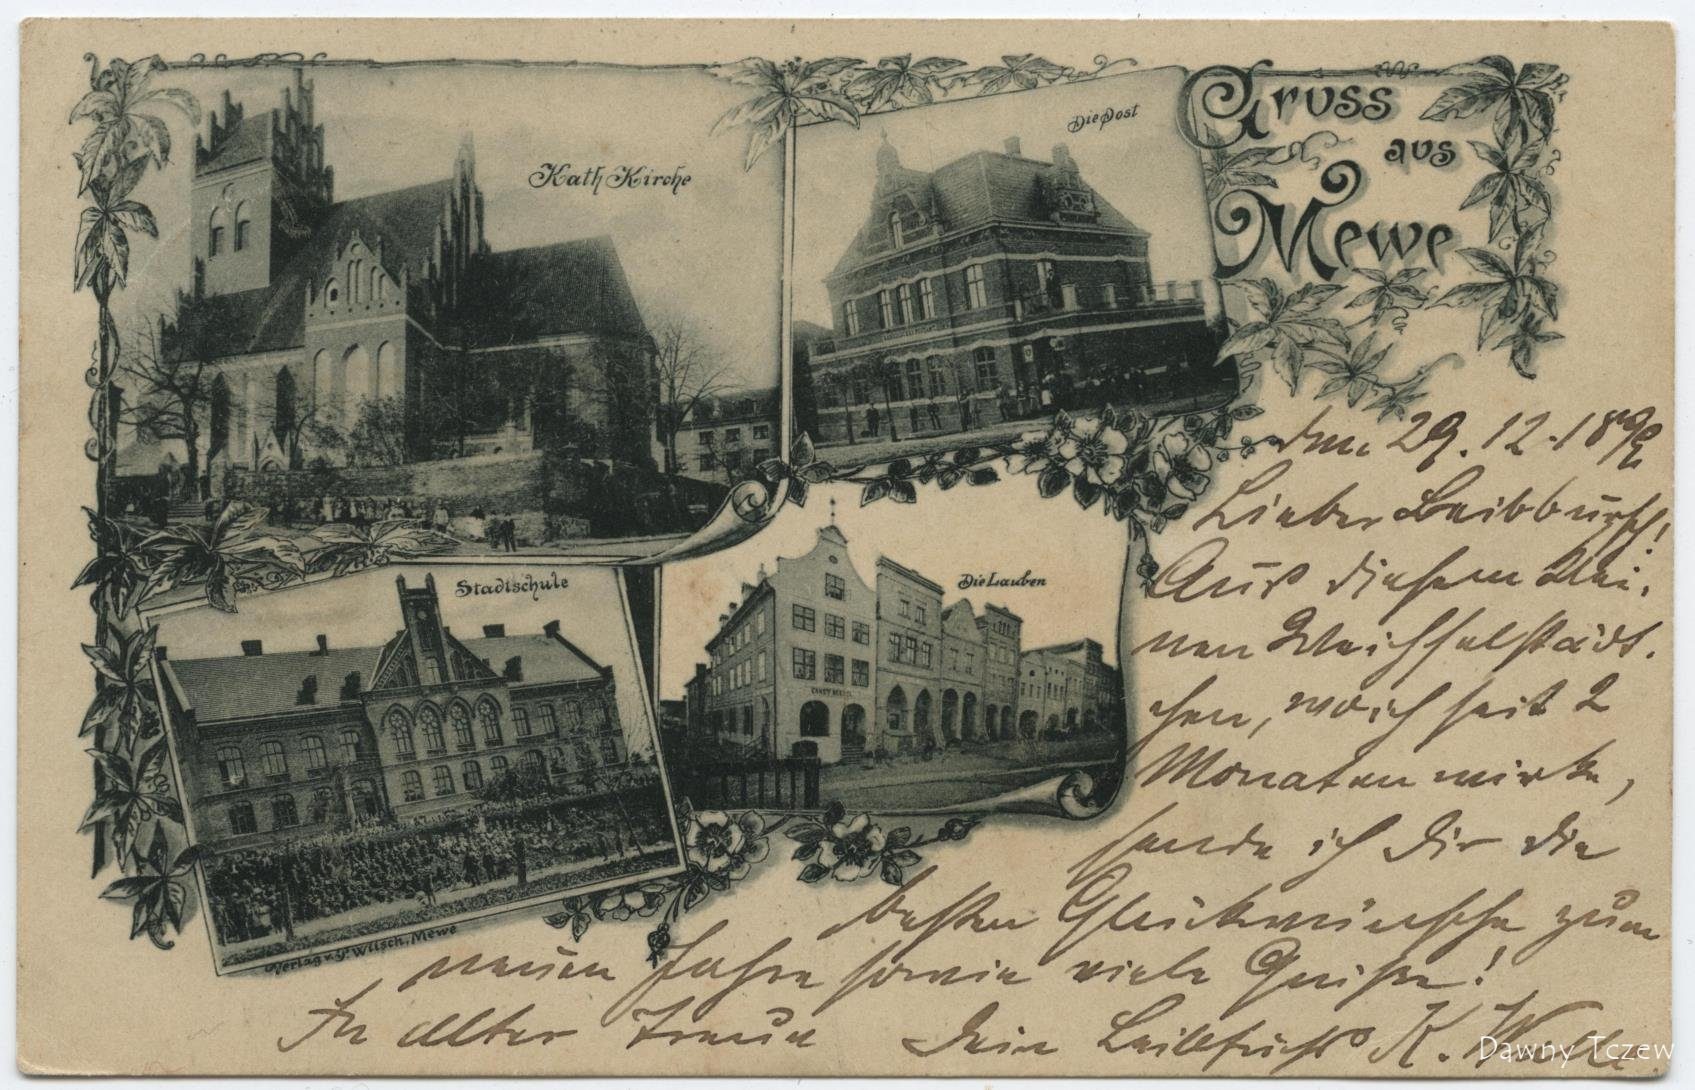 Gruss
aus
Mewe
Kath Kirche
Die Post
Stadtschule
Die Lauben
Verlag v. P. Wilsch, Mewe
den 29. 12. 189
Lieber Leibbursch!
Aus diesem klei-
nen Weichselstädt-
chen, wo ich seit 2
Monaten wirke,
sende ich Dir die
besten Glückwünsche zum
neuen Jahre sowie viele Grüße!
In alter Treue Dein Leibfuchs K.
Dawny Tczew